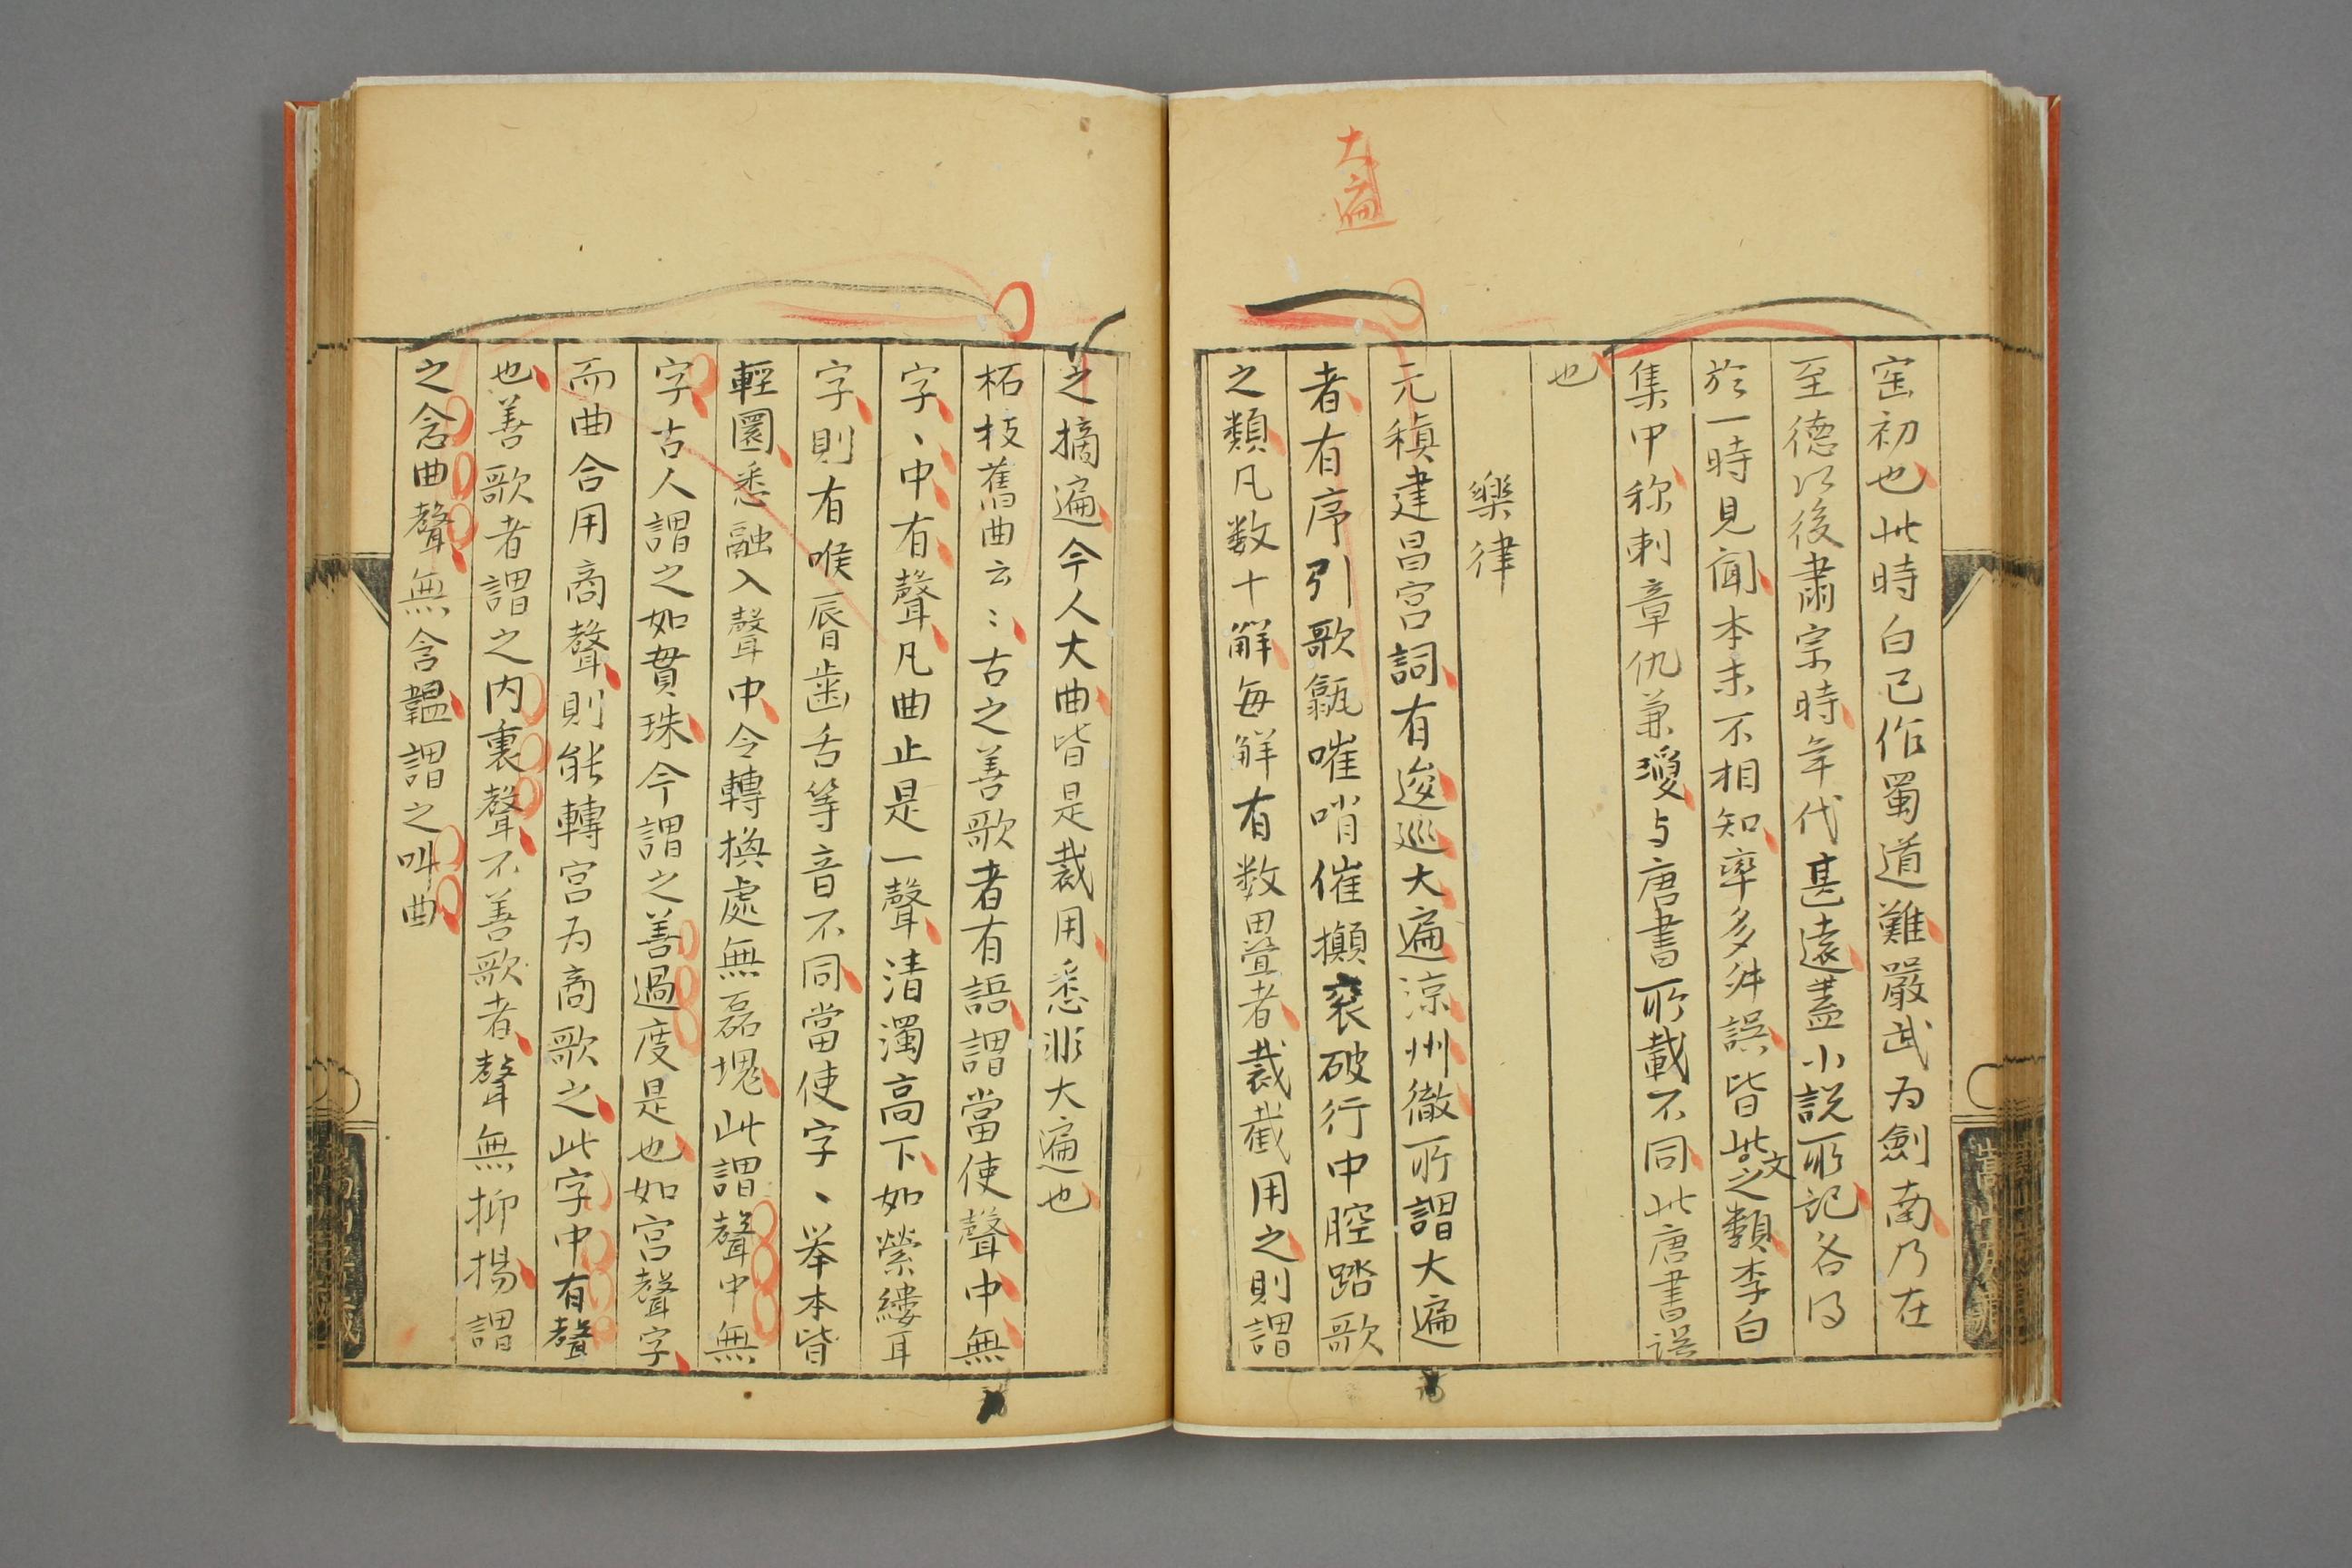 大遍
寶初也此時白已作蜀道難嚴武为劍南乃在
至德以後肅宗時年代甚遠蓋小説所記各得
於一時見聞本末不相知率多舛誤皆此文之類李白
集中称刺章仇兼瓊与唐書所載不同此唐書误
也
樂律
元稹建昌宫詞有逡巡大遍涼州徹所謂大遍
者有序引歌㽋嗺哨催攧衮破行中腔踏歌
之類凡数十解每解有数疊者裁截用之則謂
之摘遍今人大曲皆是裁用悉非大遍也
柘枝舊曲云〻古之善歌者有語謂當使聲中無
字、中有聲凡曲止是一聲清濁高下如縈縷耳
字則有喉唇齒舌等音不同當使字、举本皆
輕圜悉融入聲中令轉換處無磊塊此謂聲中無
字古人謂之如貫珠今謂之善過度是也如宫聲字
而曲合用商聲則能轉宫为商歌之此字中有聲
也善歌者謂之内裏聲不善歌者聲無抑揚謂
之念曲聲無含韞謂之叫曲